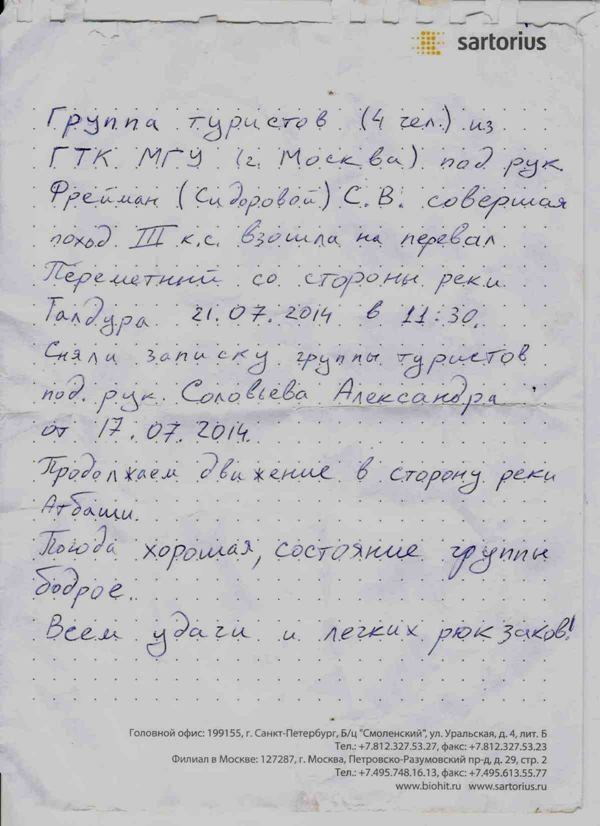 sartorius
Группа туристов (4 чел.) из
ГТК МГУ (г. Москва) под рук.
Фрейман (Сидоровой) С.В. совершая
поход III к.с. взошла на перевал
Переметный со стороны реки
Талдура 21.07.2014 в 11:30.
Сняли записку группы туристов
под рук. Соловьева Александра
от 17.07.2014.
Продолжаем движение в сторону реки
Атбаши.
Погода хорошая, состояние группы
бодрое.
Всем удачи и легких рюкзаков!
Головной офис: 199155, г. Санкт-Петербург, Б/ц "Смоленский", ул. Уральская, д. 4, лит. Б
Тел.: +7.812.327.53.27, факс: +7.812.327.53.23
Филиал в Москве: 127287, г. Москва, Петровско-Разумовский пр-д, д. 29, стр. 2
Тел.: +7.495.748.16.13, факс: +7.495.613.55.77
www.biohit.ru www.sartorius.ru